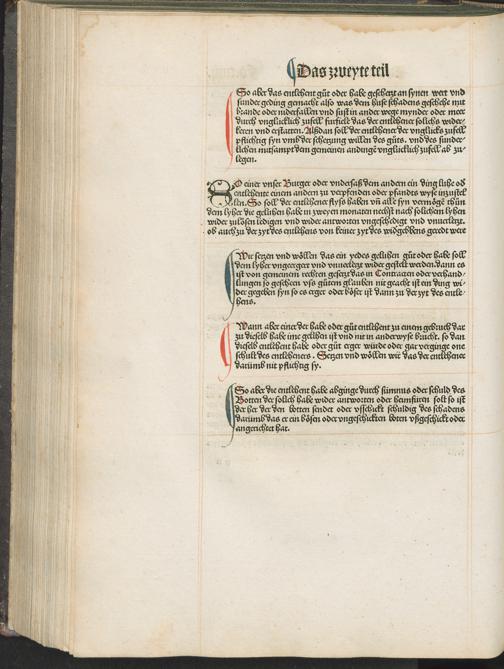 Das zweyte teil
So aber das entlehent gůt oder habe geschetzt an synen wert vnd
sunder geding gemacht also was dem huse schadens geschehe mit
brande oder niderfallen vnd sust in ander wege mynder oder meer
durch vnglücklich zufell fürfiele das der entlehener solichs wider
keren vnd erstatten. Alßdan soll der entlehener der vnglücks zufell
pflichtig syn vmb der schetzung willen des gůts. vnd des sunder
lichen mitsampt dem gemeinen andingē vnglücklich zufell ab zu
legen.
SO einer vnser Burger oder vndersaß dem andern ein ding lihe od
entlehente einem andern zu verpfenden oder pfandes wyse inzustel
len. So soll der entlehener flyss haben vñ alle syn vermögē thůn
dem lyher die gelihen habe in zweyen monaten nechst nach solichem lyhen
wider zulösen ledigen vnd wider antworten vngeschedigt vnd vnuerletzt.
ob auch zu der zyt des entlehens von keiner zyt des widgebbens geredt were
Wir setzen vnd wöllen das ein yedes gelihen gůt oder habe soll
dem lyher vngeergert vnd vnuerletzt wider gestelt werden. dann es
ist von gemeinem rechten gesetzt das in Contracten oder verhand
lungen so gescheen vss gůtem glauben nit geacht ist ein ding wi
der gegeben syn so es erger oder böser ist dann zu der zyt des entle
hens.
Wann aber einer der habe oder gůt entlehent zu einem gebruch dar
zu dieselb habe ime gelihen ist vnd nit in anderwyse brucht. so dan
dieselb entlehent habe oder gůt erger würde oder gar vergienge one
schult des entleheners. Setzen vnd wöllen wir das der entlehener
darumb nit pflichtig sy.
So aber die entlehent habe abginge durch sümnus oder schuld des
Botten der solich habe wider antworten oder heimfüren solt so ist
der her der den botten sendet oder vsschickt schuldig des schadens
darumb das er ein bösen oder vngeschickten boten vßgeschickt oder
angerichtet hat.